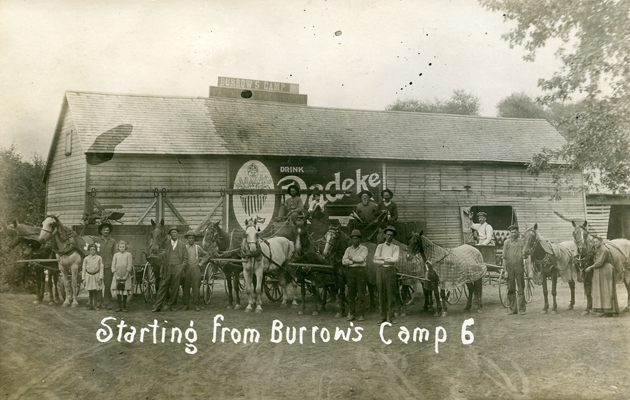 BURROW'S CAMP
DRINK
Radeke
Starting from Burrow's Camp 6